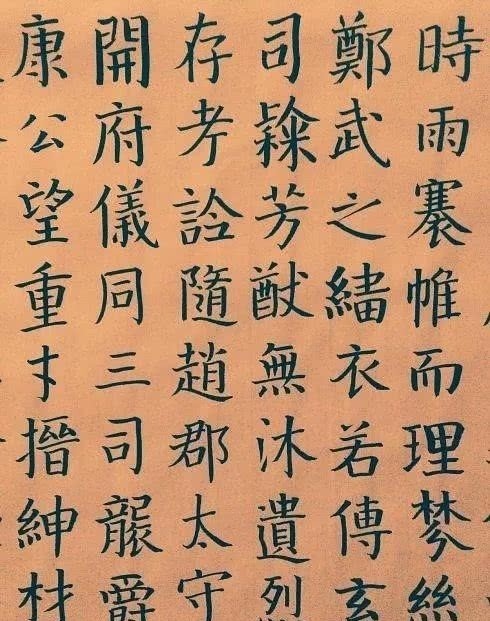 時雨褰帷而理棼絲
鄭武之緇衣若傳玄
司鎳芳猷無沐遺烈
存考諱隨趙郡太守
開府儀同三司襲爵
康公望重寸搢紳材